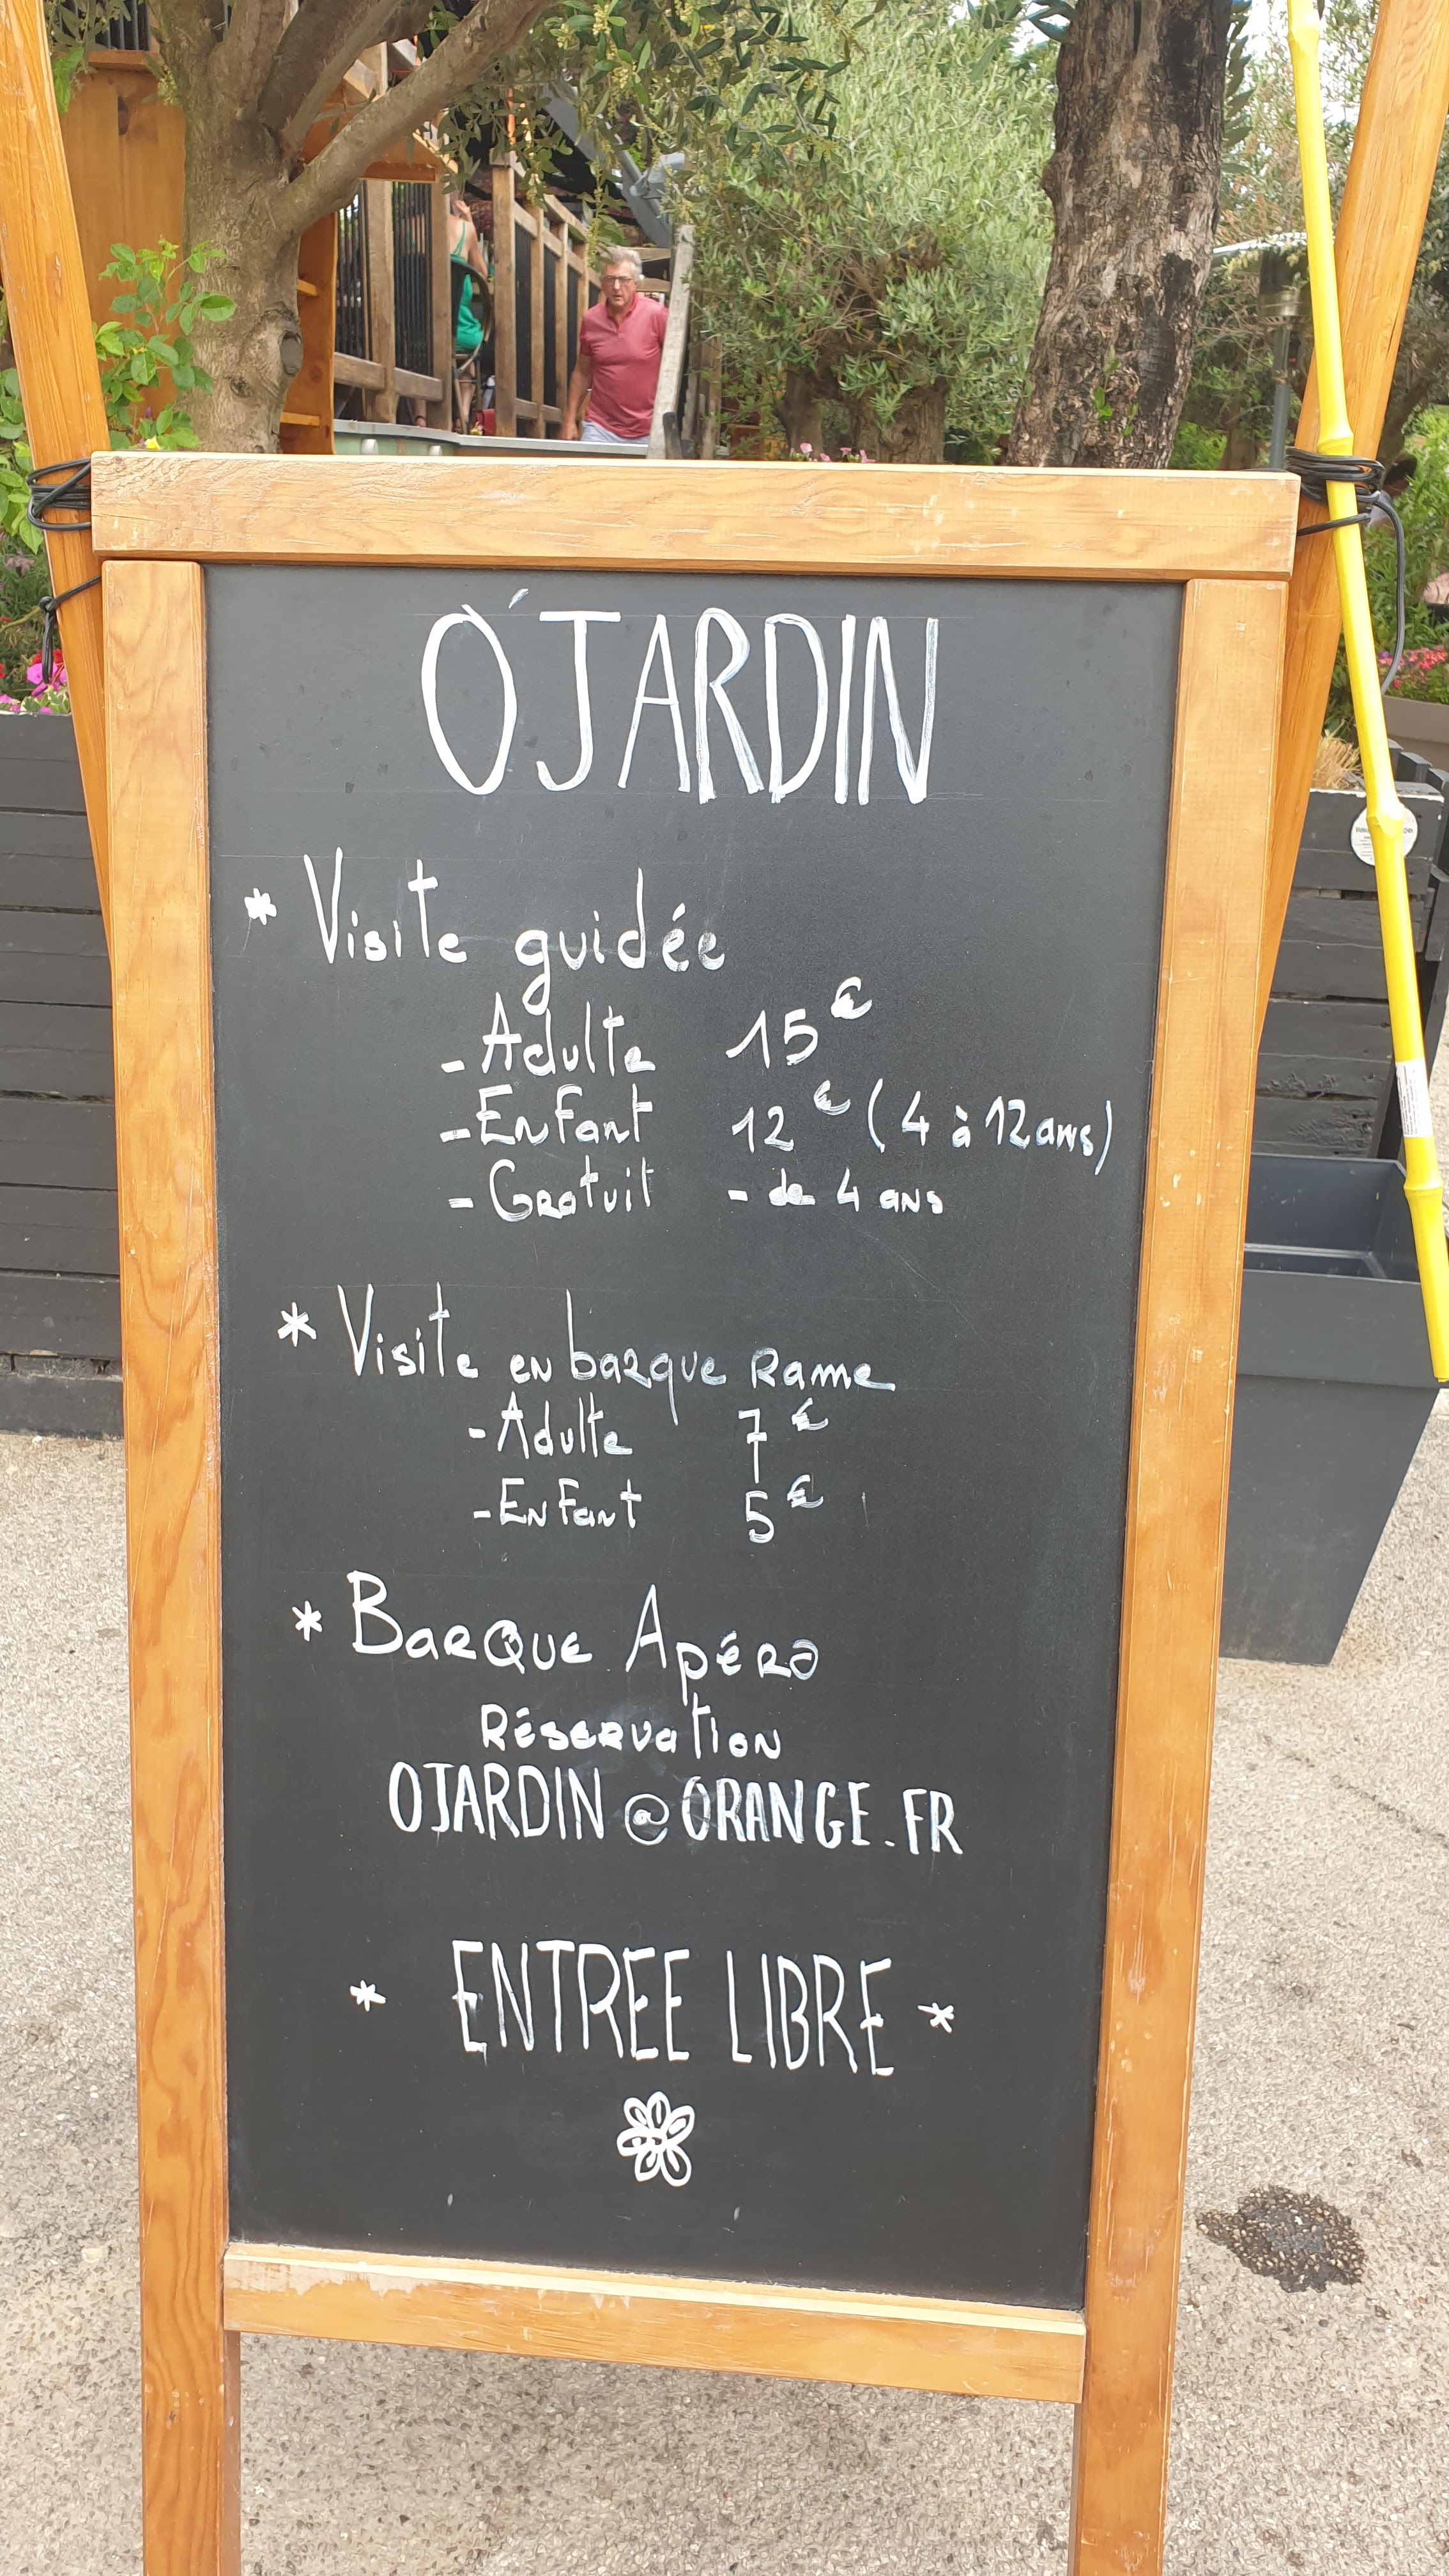 O'JARDIN
* Visite guidée
- Adulte 15€
- Enfant 12€ (4 à 12 ans)
- Gratuit - de 4 ans
* Visite en barque Rame
- Adulte 7€
- Enfant 5€
* Barque Apéro
Réservation
OJARDIN@ORANGE.FR
* ENTREE LIBRE *